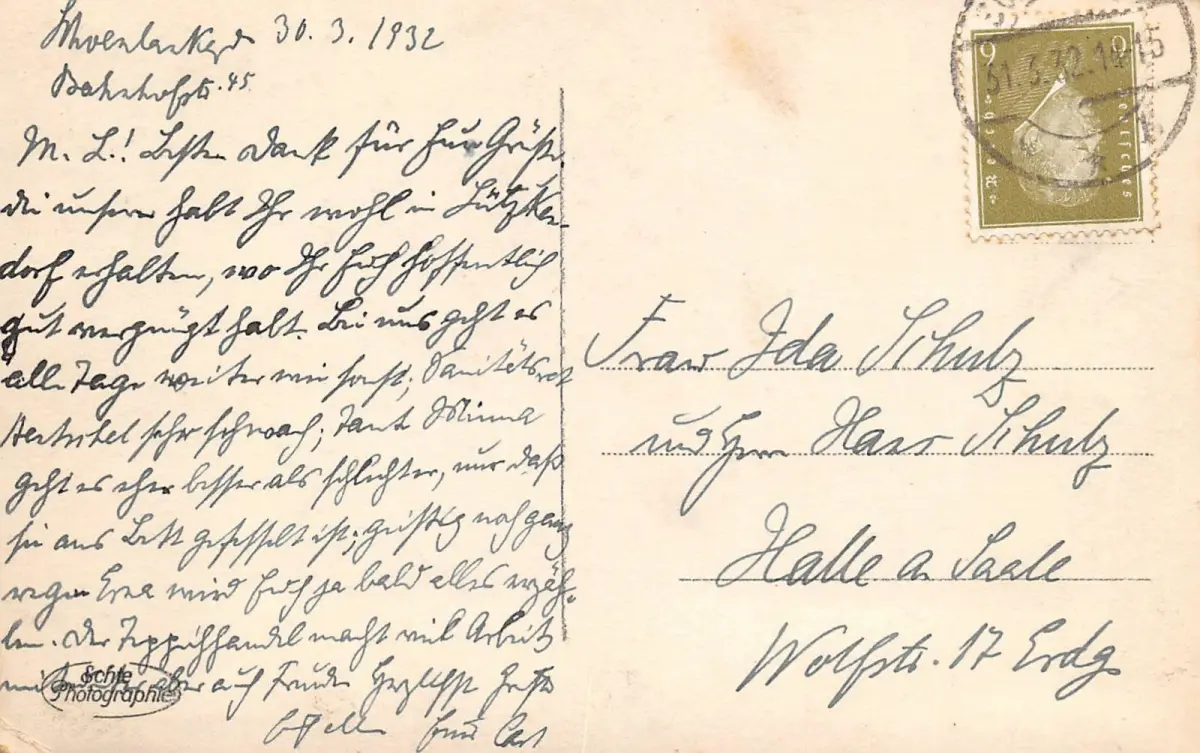 30. 3. 1932
Bahnhofstr. 45
M. L.! Besten Dank für Eure Grüße
die unsren habt Ihr wohl in Lützken-
dorf erhalten, wo Ihr Euch hoffentlich
gut vergnügt habt. Bei uns geht es
alle Tage weiter wie sonst; Sanitätsrat
sehr schwach; Tante Minna
geht es eher besser als schlechter, nur daß
sie ans Bett gefesselt ist; geistig noch ganz
rege. Erna wird Euch ja bald alles erzäh-
len. Der Teppichhandel macht viel Arbeit
aber auch Freude. Herzlichst
Euer
Echte
Photographie
9 9
Deutsches
31.3.32.14-15
Frau Ida Schulz
und Herrn Hans Schulz
Halle a Saale
Wolfstr. 17 Erdg.